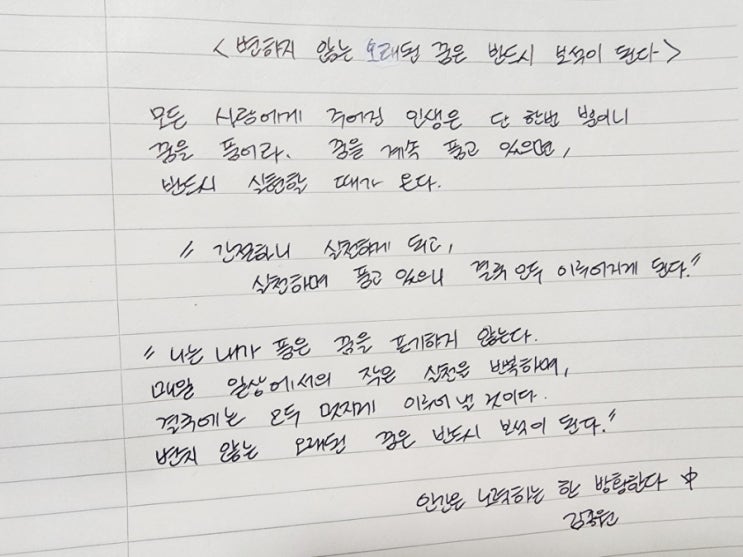 <변하지 않는 오래된 꿈은 반드시 보석이 된다>
모든 사람에게 주어진 인생은 단 한번 뿐이니
꿈을 품어라. 꿈을 계속 품고 있으면,
반드시 실현할 때가 온다.
"간절하니 실천하게 되고,
실천하며 품고 있으니 결국 모두 이루어지게 된다."
"나는 내가 품은 꿈을 포기하지 않는다.
매일 일상에서의 작은 실천을 반복하며,
결국에는 모두 멋지게 이루어낼 것이다.
변치 않는 오래된 꿈은 반드시 보석이 된다."
인간은 노력하는 한 방황한다
김종원